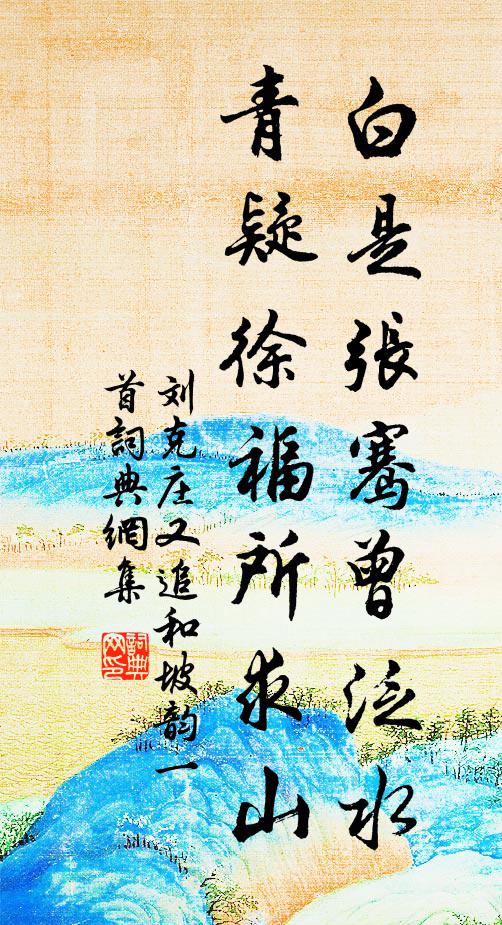 白是張騫曾泛水
青疑徐福所求山
刘克庄又追和坡韵一
首詞典網集
詞典
网印